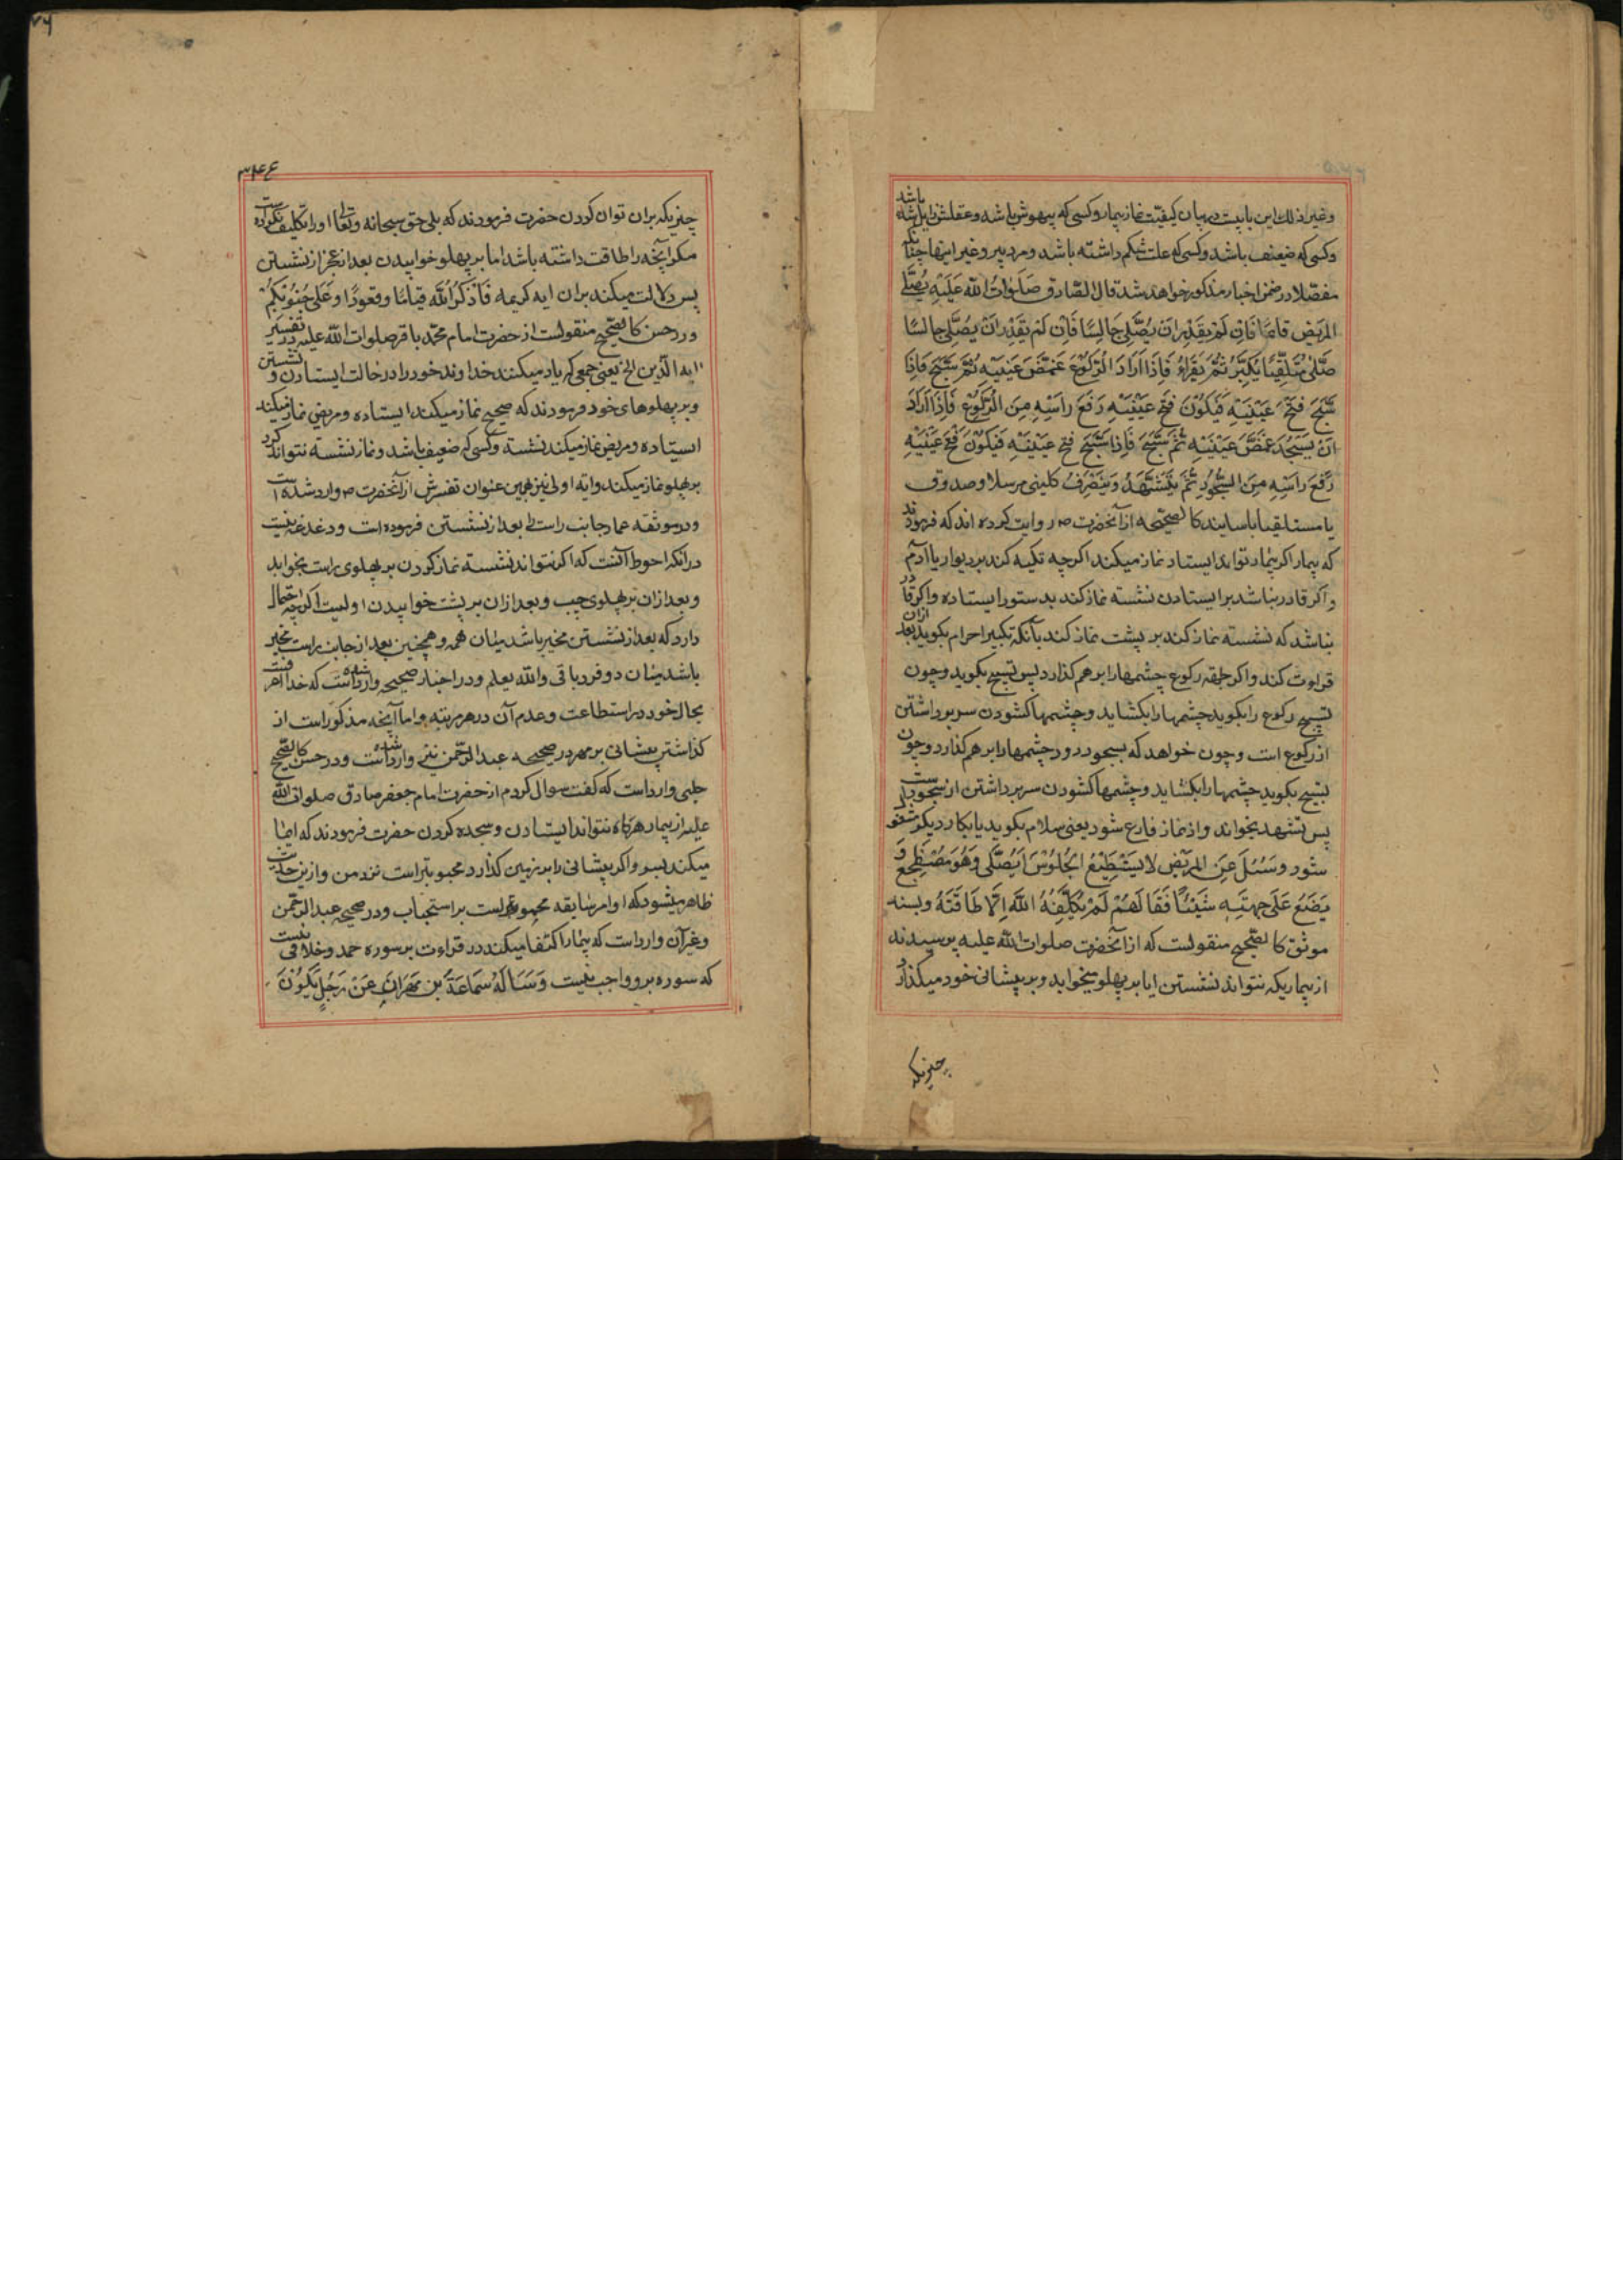 وغیر ذلک این بابیست در بیان کیفیّت نماز بیمار و کسی که بیهوش باشد و عقلش زایل شده باشد
وکسی که ضعیف باشد و کسی که علت شکم داشته باشد و مرد پیر و غیر اینها چنانکه
مفصّلا در ضمن اخبار مذکور خواهد شد قال الصّادق صَلَواتُ الله عَلَیْهِ یُصَلّی
المَریض قائمًا فَاِن لَمْ یَقدِر اَنْ یُصَلّی جَالِسًا فَاِن لَمْ یَقدِر اَنْ یُصَلّی جالسًا
صَلّی مُسْتَلقِیًا یُکَبِّرُ ثُمَّ یَقْرَاءُ فَاِذَا اَرَادَ الرُّکُوْعَ غَمَّضَ عَیْنَیْهِ ثُمَّ سَبَّحَ فَاِذَا
سَبَّحَ فَتَحَ عَیْنَیْهِ فَیَکُوْنُ فَتْحُ عَیْنَیْهِ رَفْعَ رَاسِهِ مِنَ الرُّکُوْعِ فَاِذَا اَرَادَ
اَنْ یَسْجُدَ غَمَّضَ عَیْنَیْهِ ثُمَّ سَبَّحَ فَاِذَا سَبَّحَ فتح عَیْنَیْهِ فَیَکُوْنُ فَتْحُ عَیْنَیْهِ
رَفْعَ رَاسِهِ مِنَ السُّجُوْدِ ثُمَّ یَتَشَهَّدُ وَیَنْصَرِفُ کلینی مرسلا و صدوق
با سانید کالصحیحه از آنحضرت ص روایت کرده اند که فرمودند
که بیمار اکر تواند ایستاد نماز میکند اکرچه تکیه کند بر دیوار یا آدم
و اکر قادر نباشد بر ایستادن نشسته نماز کند بدستور ایستاده و اکر قادر
نباشد که نشسته نماز کند بر پشت نماز کند بآنکه تکبیر احرام بکوید بعد ازان
قراءت کند و اکر رکوع چشمها را بر هم کذارد پس تسبیح بکوید و چون
تسبیح رکوع را بکوید چشمها را بکشاید و چشمها کشودن سر برداشتن
از رکوع است و چون خواهد که بسجود رود چشمها را بر هم کذارد و چون
تسبیح بکوید چشمها را بکشاید و چشمها کشودن سر برداشتن از سجودست
پس تشهد بخواند و از نماز فارغ شود یعنی سلام بکوید یا بکار دیکر مشغول
شود وسُئِلَ عَنِ المَریْض لایَسْتَطِیْعُ الجُلُوْسَ اَیُصَلّی وَهُوَ مُضْطَجِعٌ وَ
یَضَعُ عَلَی جَبْهَتِهِ شَیْئًا فَقَالَ نَعَمْ لَمْ یُکَلِّفْهُ اللهُ اِلَّا طَاقَتَهُ وبسند
موثق کالصّحیح منقولست که از آنحضرت صلوات الله علیه پرسیدند
از بیماریکه نتواند نشستن ایا بر پهلو بخوابد و بر پیشانی خود میکذارد
چیزیکه
۳۴۴
چیزیکه بران توان کردن حضرت فرمودند که بلی حق سبحانه وتعالی او را تکلیف نکرده است
مکر آنچه را طاقت داشته باشد اما بر پهلو خوابیدن بعد از عجز از نشستن
پس دلالت میکند بران ایه کریمه فَاذْکُرُوا الله قیامًا وقعودًا وَعَلی جُنُوْبِکُمْ
و در حسن کالصّحیح منقولست از حضرت امام محمّد باقر صلوات الله علیه در تفسیر
ایه الّذین الخ یعنی جمعی که یاد میکنند خداوند خود را در حالت ایستادن و نشستن
و بر پهلوهای خود فرمودند که صحیح نماز میکند ایستاده و مریض نماز میکند
ایستاده و مریض نماز میکند نشسته و کسی که ضعیف باشد و نماز نشسته نتواند کرد
بر پهلو نماز میکند و ایه اولی نیز بهمین عنوان تفسیرش از آنحضرت ص وارد شده است
و در موثقه عمار جانب راست را بعد از نشستن فرموده است و دغدغه نیست
در انکه احوط آنست که اکر نتواند نشسته نماز کردن بر پهلوی راست بخوابد
و بعد ازان بر پهلوی چپ و بعد ازان بر پشت خوابیدن اولیست اکرچه احتمال
دارد که بعد از نشستن مخیر باشد میان همه و همچنین بعد از جانب راست مخیر
باشد میان دو فرد باقی والله یعلم و در اخبار صحیحه وارد شده است که خدا
بحال خود در استطاعت وعدم آن در هر مرتبه و اما آنچه مذکور است از
کذاشتن پیشانی بر مهر در صحیحه عبد الرّحمن نیز وارد شده است و در حسن کالصّحیح
حلبی وارد است که کفت سوال کردم از حضرت امام جعفر صادق صلوات الله
علیه از بیمار هرکاه نتواند ایستادن و سجده کردن حضرت فرمودند که ایما
میکند بسر و اکر پیشانی را بر زمین کذارد محبوبتر است نزد من و ازین حدیث
ظاهر میشود که اوامر سابقه محمولست بر استحباب و در صحیحه عبد الرّحمن
وغیر آن وارد است که بیمار اکتفا میکند در قراءت بر سوره حمد و خلافی نیست
که سوره برو واجب نیست وَسَاَلَهُ سَمَاعَةُ بن مهْرَان عَنْ رَجُلٍ یَکُوْنُ